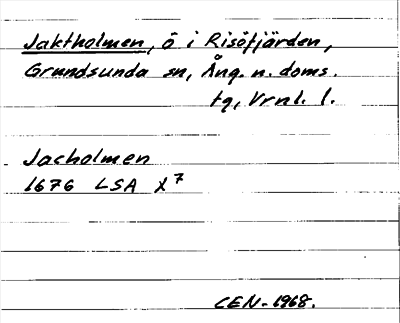 Jaktholmen, ö i Risöfjärden,
Grundsunda sn, Ång. n. doms.
tg, Vrnl. l.
Jacholmen
1676 LSA X 7
CEN-1968.